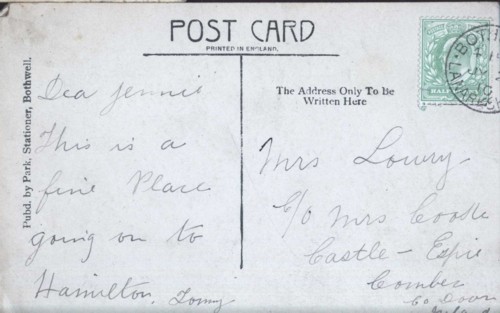 POST CARD
PRINTED IN ENGLAND.
Pubd. by Park, Stationer, Bothwell.
Dea Jennie
This is a
fine Place
going on to
Hamilton, Tommy
The Address Only To Be
Written Here
Mrs Lowry
C/o Mrs Cooke
Castle - Espie
Comber
Co Down
HALF
BOTH
LANARK